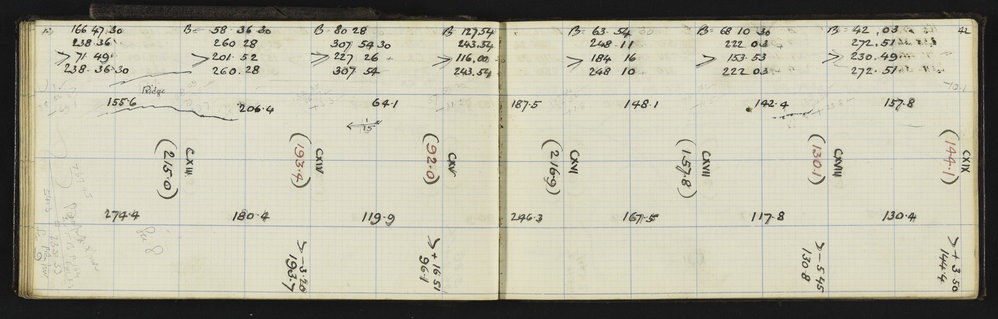 166 47.30 B= 58.36.30 B= 80 28 B 127.54
238.36 260 28 307 54 30 243.54
> 71 49 > 201 52 > 227 26 > 116.00
238.36.30 260.28 307 54 243.54
Ridge
155.6 206.4 64.1
15
CXIII
(215.0)
CXIV
(193.4)
CXV
(92.0)
274.4 180.4 119.9
> -3.20
193.7
> +16 51
96.1
B= 63.54 B= 68 10 30 B= 42.03 42
248.11 222 03 272.51
> 184 16 > 153.53 > 230.49
248 10 222 03 272.51
187.5 148.1 142.4 157.8
CXVI
(216.9)
CXVII
(157.8)
CXVIII
(130.1)
CXIX
(144.1)
246.3 167.5 117.8 130.4
> -5.45
130.8
> +3.50
144.4